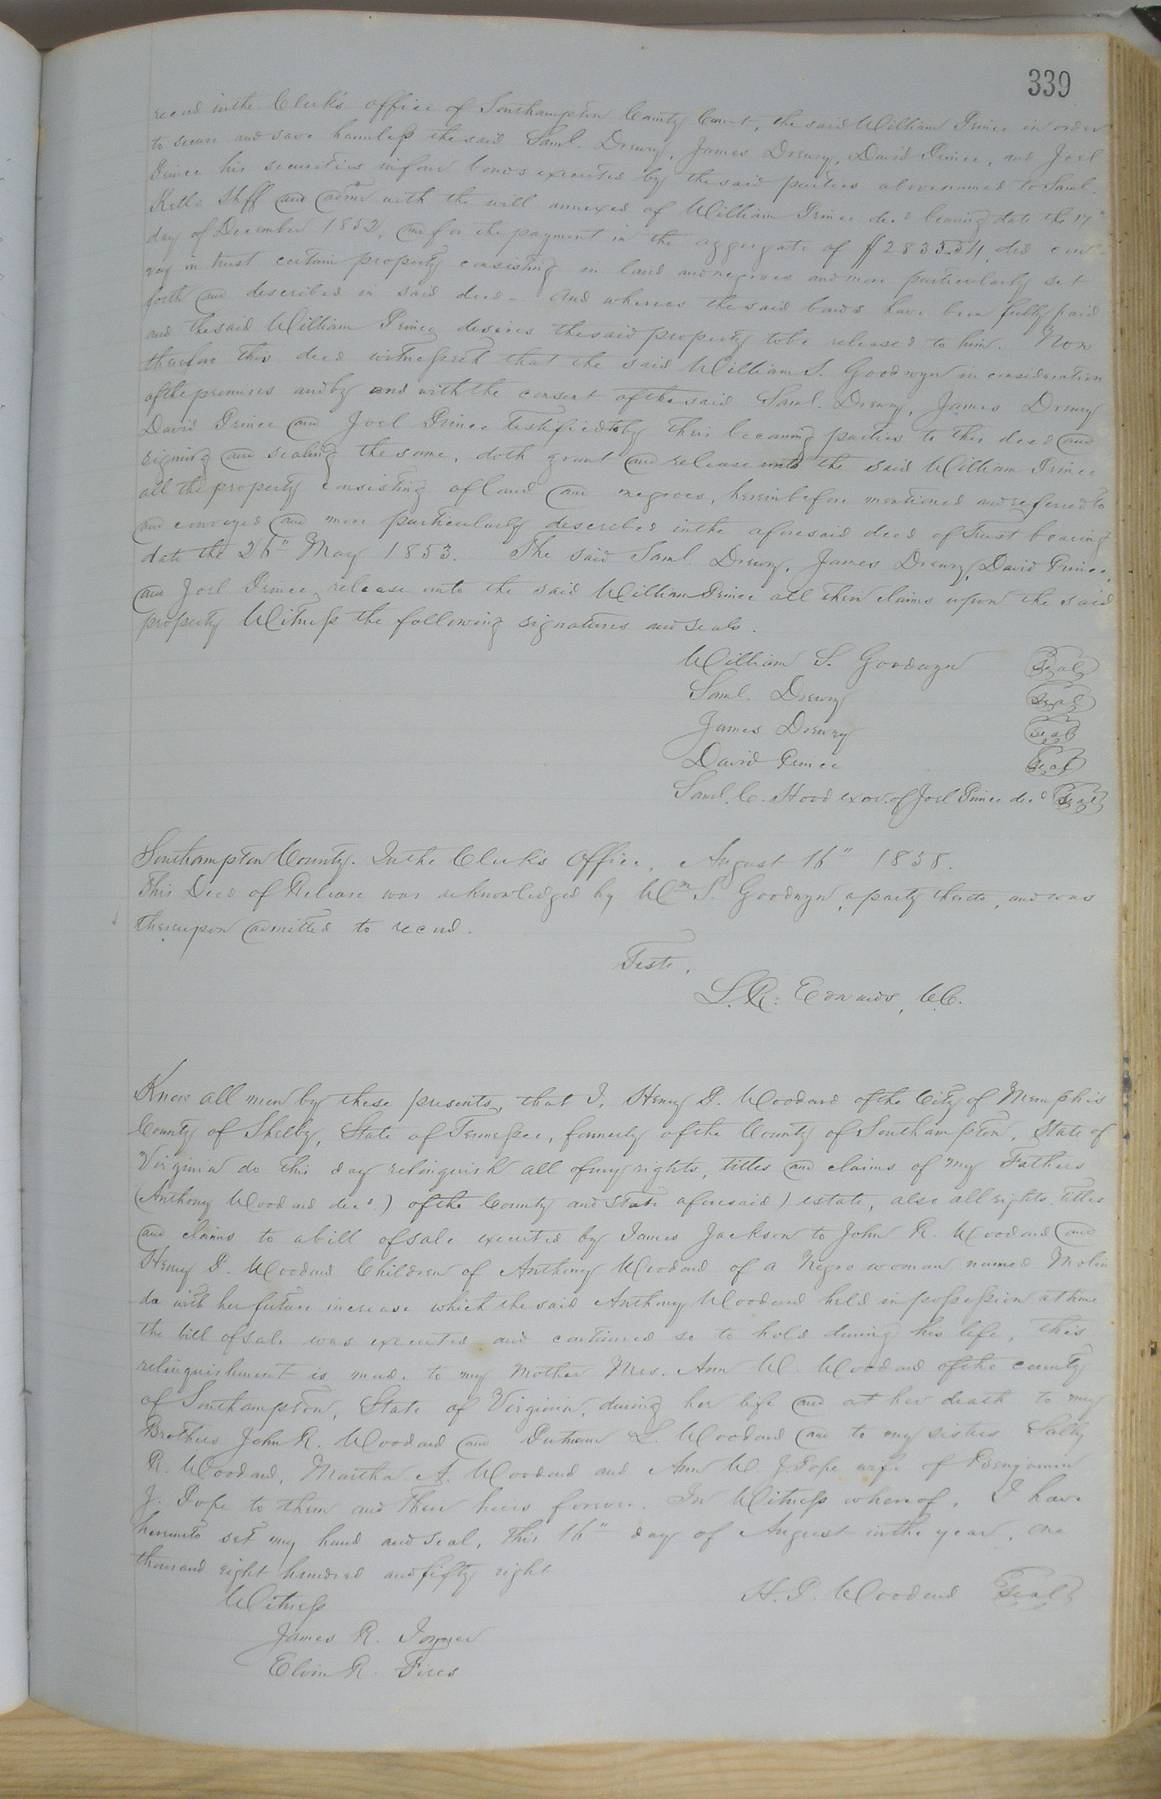 339
record in the Clerk's office of Southampton County Court, the said William Prince in order
to secure and save harmless the said Saml. Drewry, James Drewry, David Prince, and Joel
Prince his securities in four bonds executed by the said parties above named to Saml.
Kello Shff and admr with the will annexed of William Prince decd bearing date the 17th
day of December 1852, and for the payment in the aggregate of $2835.54, did con-
vey in trust certain property consisting in land and negroes and more particularly set
forth and described in said deed - And whereas the said bonds have been fully paid
and the said William Prince desires the said property to be released to him. Now
therefore this deed witnesseth that the said William S. Goodwyn in consideration
of the premises and by and with the consent of the said Saml. Drewry, James Drewry
David Prince and Joel Prince testified to by their becoming parties to this deed and
signing and sealing the same, doth grant and release unto the said William Prince
all the property consisting of land and negroes, hereinbefore mentioned and referred to
and conveyed and more particularly described in the aforesaid deed of Trust bearing
date the 26th May 1853. The said Saml. Drewry, James Drewry, David Prince,
and Joel Prince, release unto the said William Prince all their claims upon the said
property Witness the following signatures and seals.
William S. Goodwyn Seal
Saml. Drewry Seal
James Drewry Seal
David Prince Seal
Saml. C. Hood exor. of Joel Prince decd Seal
Southampton County. In the Clerk's Office, August 16th 1858.
This Deed of Release was acknowledged by Wm S. Goodwyn, a party thereto, and was
thereupon admitted to record.
Teste,
L. R. Edwards, C.C.
Know all men by these presents, that I, Henry P. Woodard of the City of Memphis
County of Shelby, State of Tennessee, formerly of the County of Southampton, State of
Virginia do this day relinquish all of my rights, titles and claims of my Fathers
(Anthony Woodard decd.) of the County and State aforesaid) estate, also all rights titles
and claims to a bill of sale executed by James Jackson to John R. Woodard and
Henry P. Woodard Children of Anthony Woodard of a Negro woman named Molin
da with her future increase which the said Anthony Woodard held in possession at time
the bill of sale was executed and continued so to hold during his life, this
relinquishment is made to my Mother Mrs. Ann W. Woodard of the county
of Southampton, State of Virginia, during her life and at her death to my
Brothers John R. Woodard and Putnam L. Woodard and to my sisters Sally
R. Woodard, Martha A. Woodard and Ann W. J. Pope wife of Benjamin
J. Pope to them and their heirs forever. In Witness whereof, I have
hereunto set my hand and seal, this 16th day of August in the year, one
thousand eight hundred and fifty eight
H. P. Woodard Seal
Witness
James R. Joyner
Elvin R.